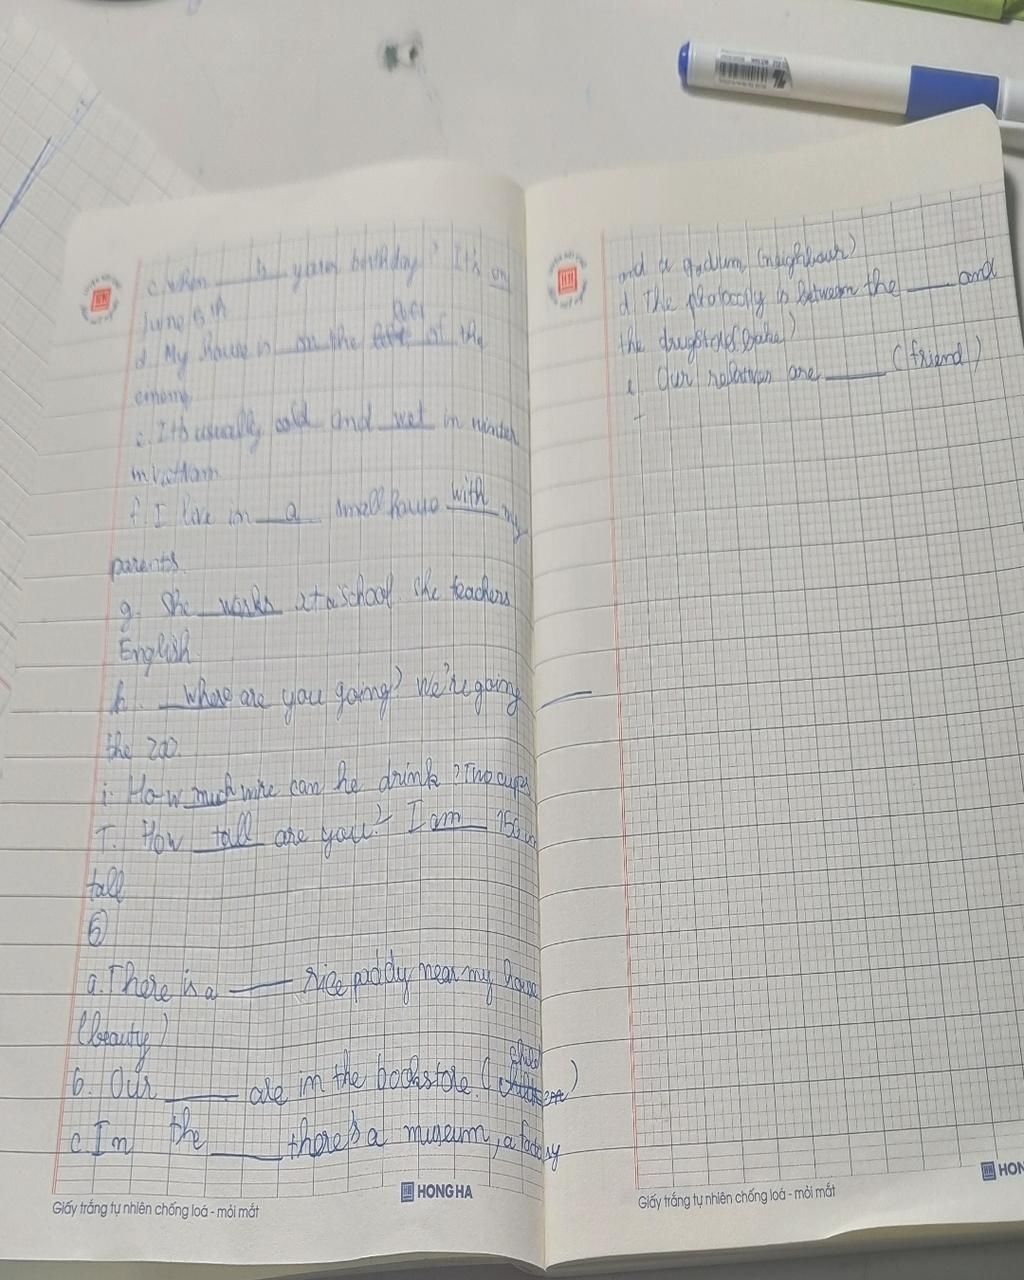 c. When is your birthday? It's on
June 8th
d. My house is on the of the
e. It's usually cold and wet in winter
in Vietnam
f. I live in a small house with my
parents.
g. She works at a school she teachers
English.
h. Where are you going? We're going
the zoo.
i. How much can he drink? Two cups
T. How tall are you? I am
tall
5
a. There is a ___ rice paddy near my house
(beauty)
b. Our ___ are in the bookstore. (child
c. In the ___ there's a museum, a factory
HONG HA
Giấy trắng tự nhiên chống loá - mỏi mắt
and a (neighbour)
d. The is between the ___ and
the
e. Our relatives are ___ (friend)
HON
Giấy trắng tự nhiên chống loá - mỏi mắt